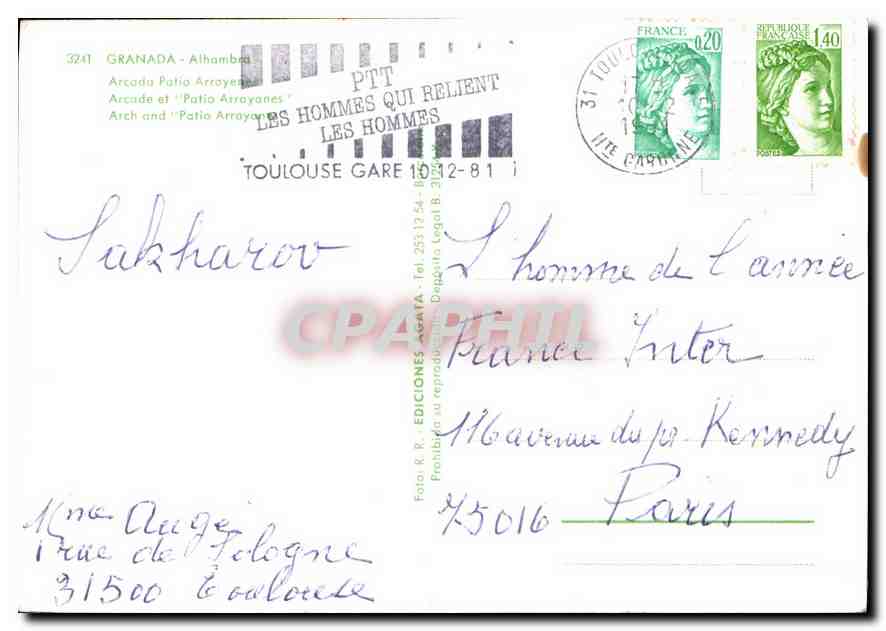 3241 GRANADA - Alhambra
Arcada Patio Arrayanes
Arcade et "Patio Arrayanes"
Arch and "Patio Arrayanes
PTT
LES HOMMES QUI RELIENT
LES HOMMES
TOULOUSE GARE 10-12-81
31 TOULOUSE
Hte GARONNE
FRANCE
0,20
REPUBLIQUE
FRANÇAISE
1,40
POSTES
Sakharov
L'homme de l'année
France Inter
116 avenue du pr. Kennedy
75016 Paris
Mme Augé
1 rue de Sologne
31500 Toulouse
Foto: R. R. - EDICIONES AGATA - Tel. 253 12 54 -
Prohibida su reproducción - Depósito Legal B.
CPAPHIL